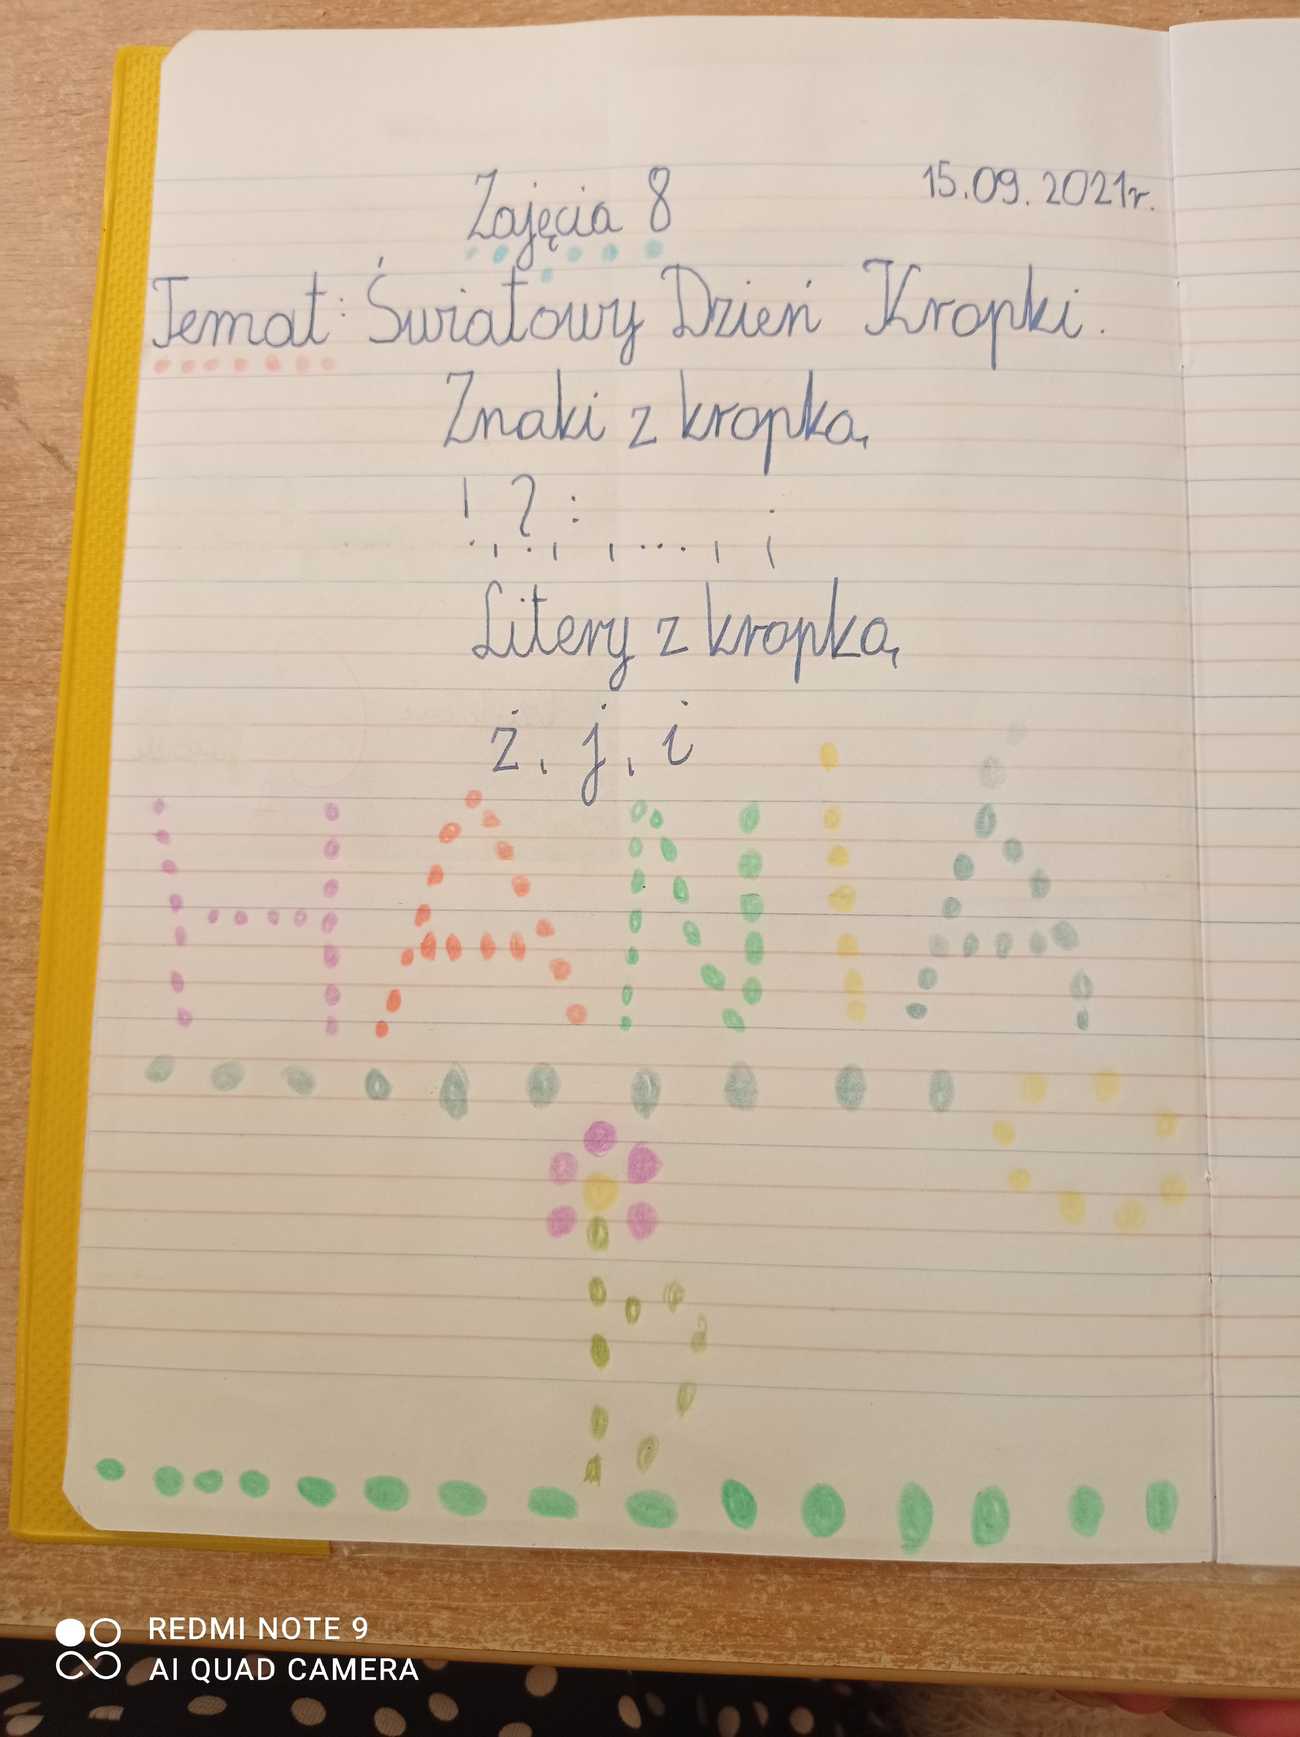 Zajęcia 8 15.09.2021r.
Temat: Światowy Dzień Kropki.
Znaki z kropką
! , ? , : , ... , ;
Litery z kropką
ż, j, i
HANIA
REDMI NOTE 9
AI QUAD CAMERA